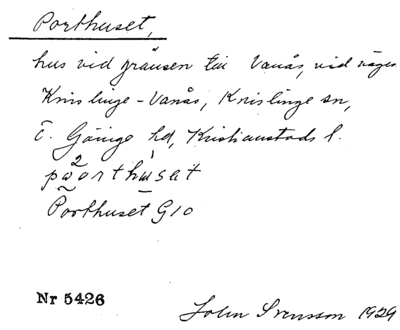 Porthuset,
hus vid gränsen till Vanås, vid vägen
Knislinge - Vanås, Knislinge sn,
Ö. Göinge hd, Kristianstads l.
Porthuset G10
Nr 5426
John Svensson 1929